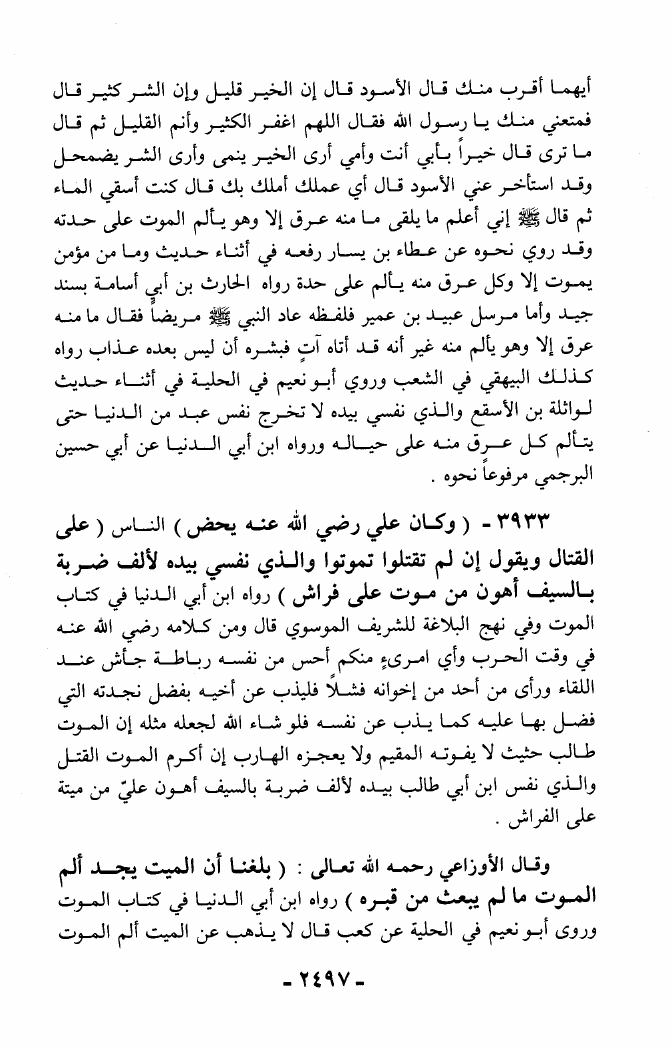 أيهما أقرب منك قال الأسود قال إن الخير قليل وإن الشر كثير قال
فمتعني منك يا رسول الله فقال اللهم اغفر الكثير وأنم القليل ثم قال
ما ترى قال خيراً بأبي أنت وأمي أرى الخير ينمى وأرى الشر يضمحل
وقد استأخر عني الأسود قال أي عملك أملك بك قال كنت أسقي الماء
ثم قال ﷺ إني أعلم ما يلقى ما منه عرق إلا وهو يألم الموت على حدته
وقد روي نحوه عن عطاء بن يسار رفعه في أثناء حديث وما من مؤمن
يموت إلا وكل عرق منه يألم على حدة رواه الحارث بن أبي أسامة بسند
جيد وأما مرسل عبيد بن عمير فلفظه عاد النبي ﷺ مريضاً فقال ما منه
عرق إلا وهو يألم منه غير أنه قد أتاه آتٍ فبشره أن ليس بعده عذاب رواه
كذلك البيهقي في الشعب وروي أبو نعيم في الحلية في أثناء حديث
لواثلة بن الأسقع والذي نفسي بيده لا تخرج نفس عبد من الدنيا حتى
يتألم كل عرق منه على حياله ورواه ابن أبي الدنيا عن أبي حسين
البرجمي مرفوعاً نحوه .
٣٩٣٣ - ( وكان علي رضي الله عنه يحض ) الناس ( على
القتال ويقول إن لم تقتلوا تموتوا والذي نفسي بيده لألف ضربة
بالسيف أهون من موت على فراش ) رواه ابن أبي الدنيا في كتاب
الموت وفي نهج البلاغة للشريف الموسوي قال ومن كلامه رضي الله عنه
في وقت الحرب وأي امرىء منكم أحس من نفسه رباطة جأش عند
اللقاء ورأى من أحد من إخوانه فشلاً فليذب عن أخيه بفضل نجدته التي
فضل بها عليه كما يذب عن نفسه فلو شاء الله لجعله مثله إن الموت
طالب حثيث لا يفوته المقيم ولا يعجزه الهارب إن أكرم الموت القتل
والذي نفس ابن أبي طالب بيده لألف ضربة بالسيف أهون عليّ من ميتة
على الفراش .
وقال الأوزاعي رحمه الله تعالى : ( بلغنا أن الميت يجد ألم
الموت ما لم يبعث من قبره ) رواه ابن أبي الدنيا في كتاب الموت
وروى أبو نعيم في الحلية عن كعب قال لا يذهب عن الميت ألم الموت
- ٢٤٩٧ -